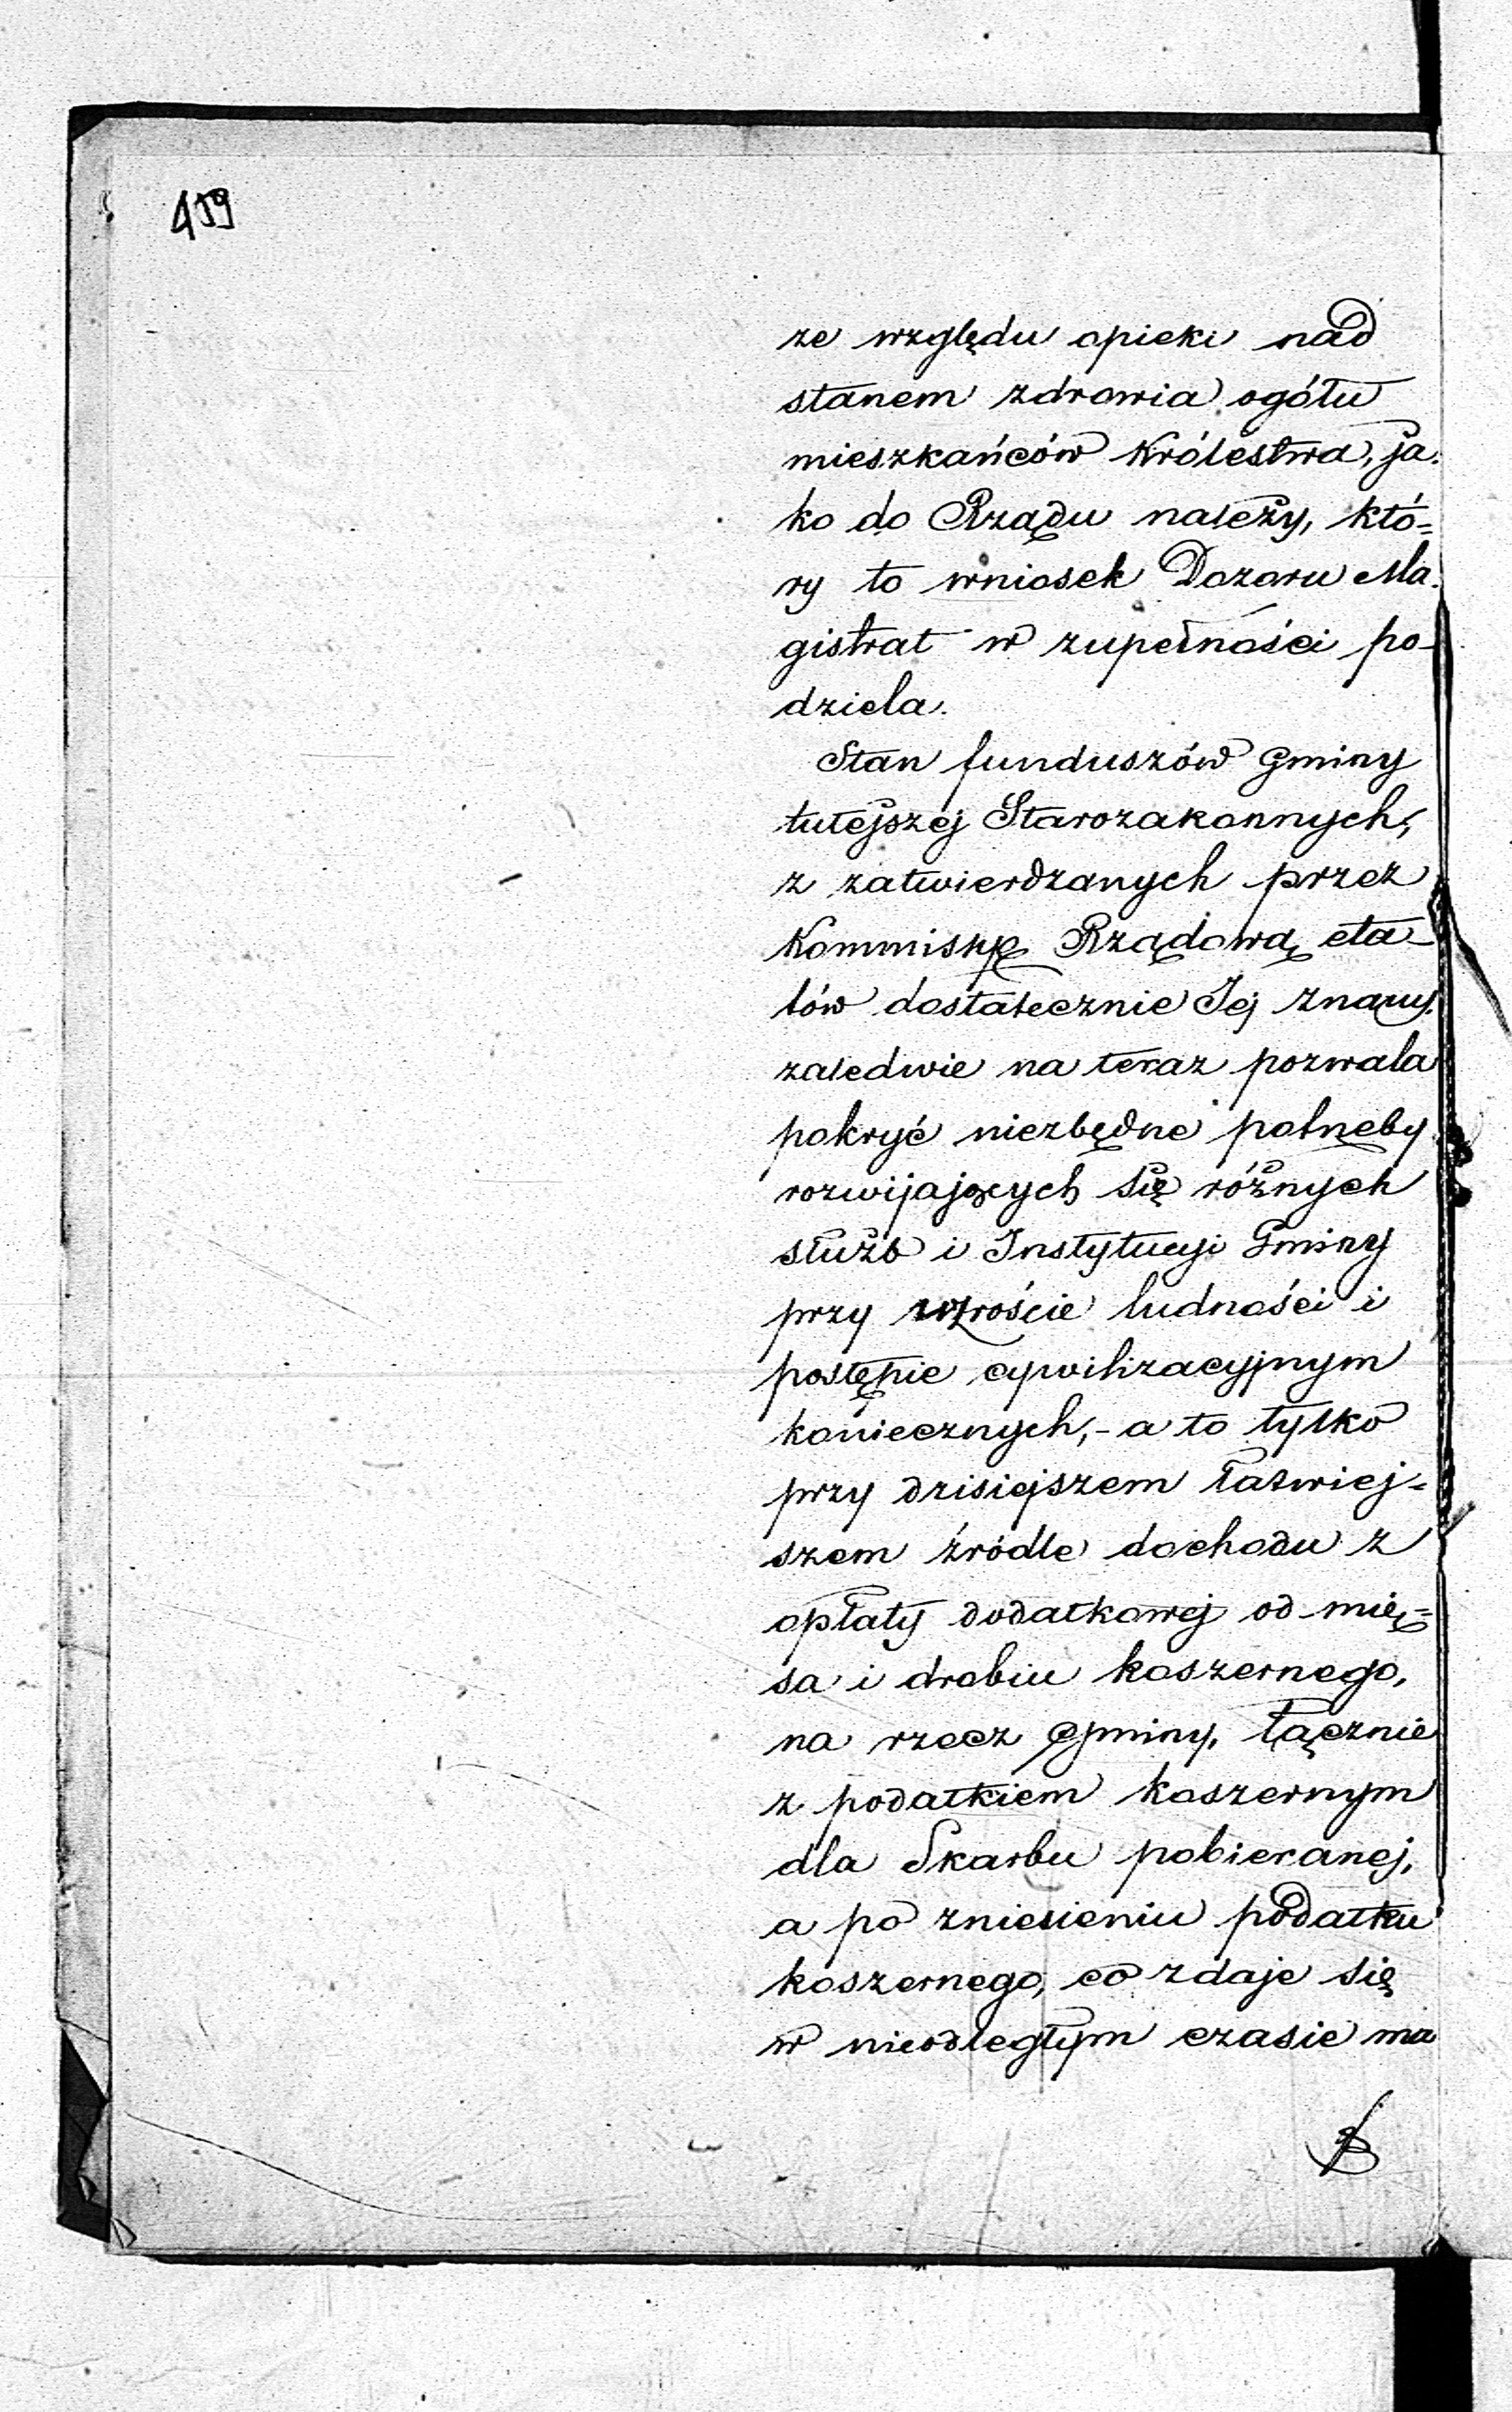 459
ze względu opieki nad
stanem zdrowia ogółu
mieszkańców Królestwa, ja-
ko do Rządu należy, któ=
ry to wniosek Dozoru Ma-
gistrat w zupełności po-
dziela.
Stan funduszów Gminy
tutejszej Starozakonnych,
z zatwierdzanych przez
Kommissyę Rządową eta-
tów dostatecznie Jej znany,
zaledwie na teraz pozwala
pokryć niezbędne potrzeby
rozwijających się różnych
służb i Instytucyi Gminy
przy wzroście ludności i
postępie cywilizacyjnym
koniecznych,- a to tylko
przy dzisiejszem łatwiej=
szem źródle dochodu z
opłaty dodatkowej od mię=
sa i drobiu koszernego,
na rzecz Gminy, łącznie
z podatkiem koszernym
dla Skarbu pobieranej,
a po zniesieniu podatku
koszernego, co zdaje się
w nieodległym czasie ma